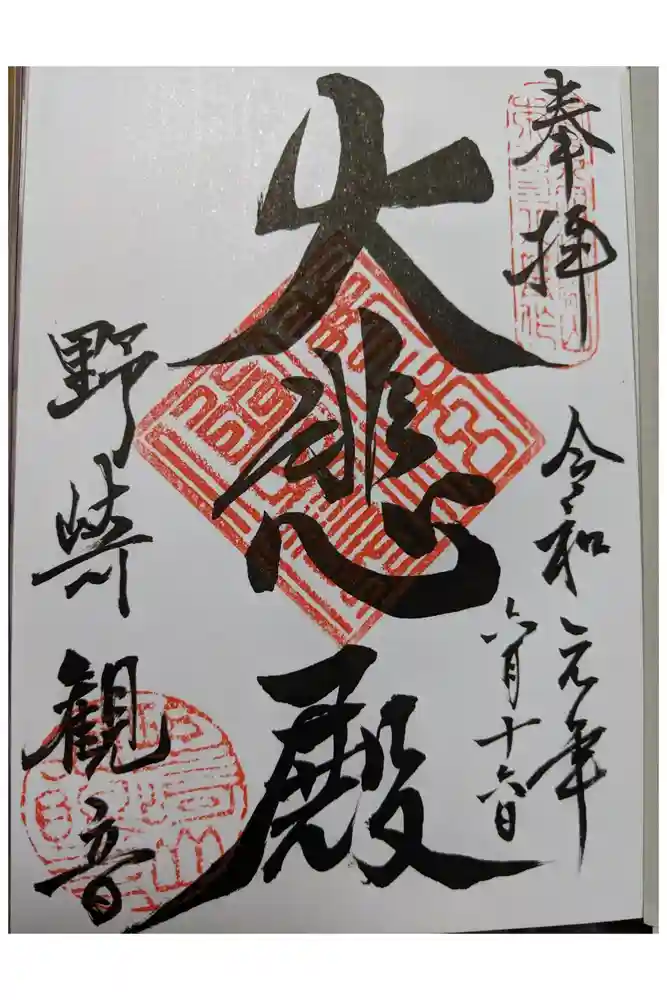 奉拝
令和元年
六月十六日
大悲殿
野崎観音